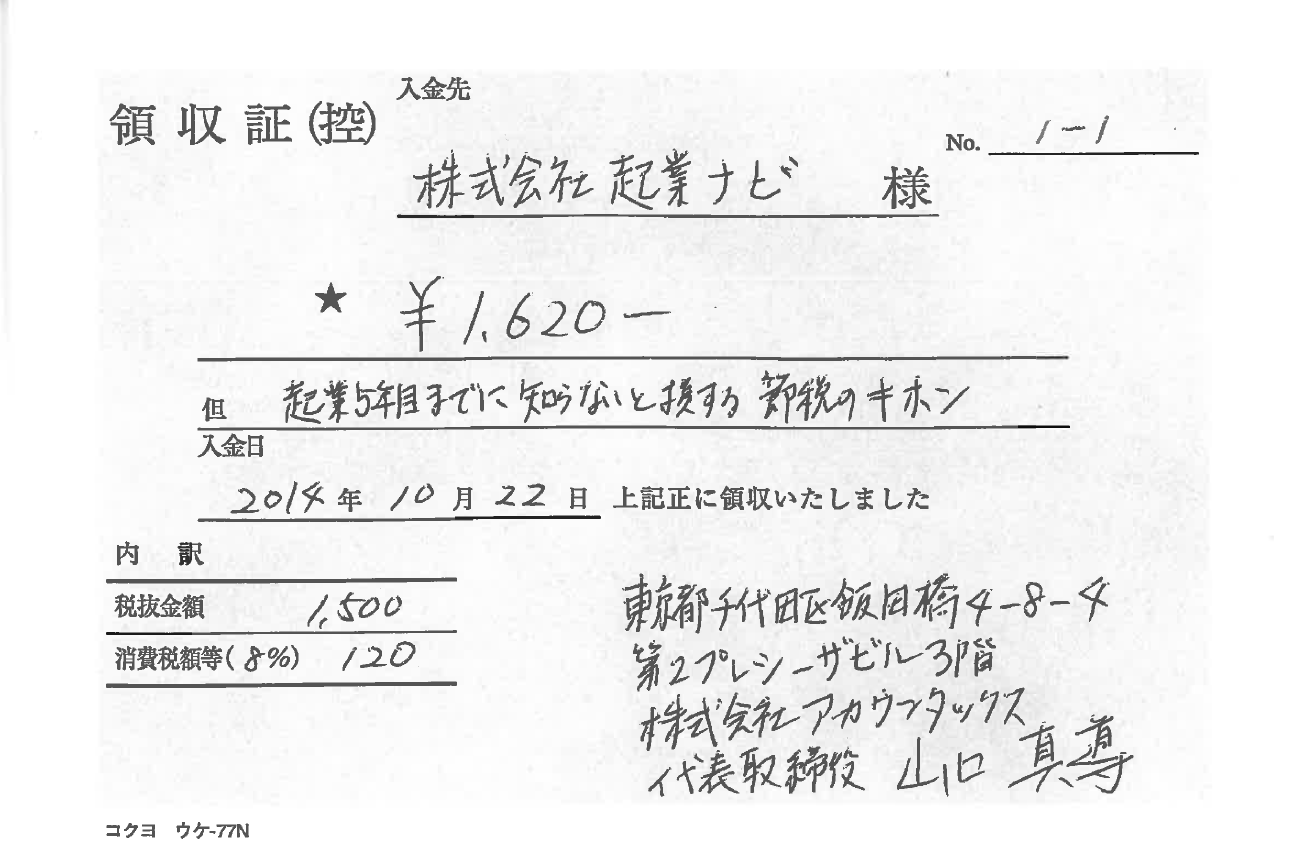 領収証(控)
入金先
No. 1-1
株式会社 起業ナビ 様
★ ¥1,620-
但 起業5年目までに知らないと損する 節税のキホン
入金日
2014年 10月 22日 上記正に領収いたしました
内訳
税抜金額 1,500
消費税額等(8%) 120
東京都千代田区飯田橋4-8-4
第2プレシーザビル3階
株式会社アカウンタックス
代表取締役 山口 真導
コクヨ ウケ-77N